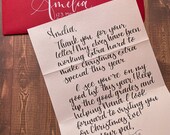 Amelia
Amelia,
Thank you for your
letter! My elves have been
working extra hard to
make Christmas extra
special this year
I see you're on my
good list this year! Keep
up the good grades and
helping Nana! I look
forward to visiting you
on Christmas Eve!